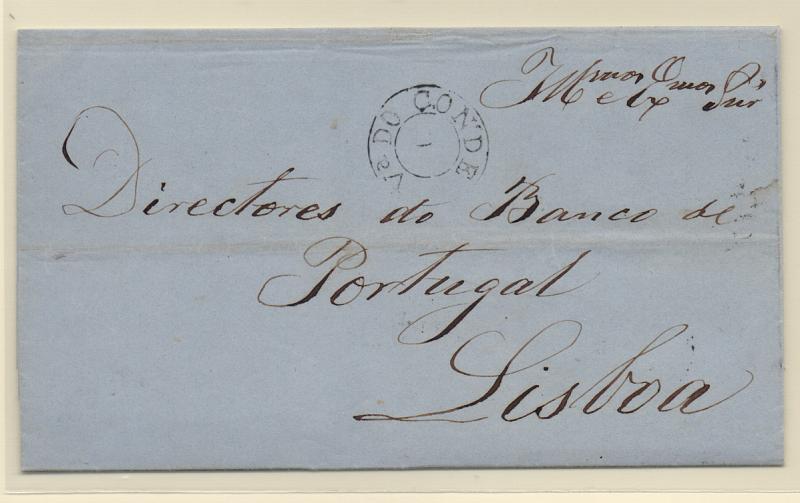 Illmos Exmos Snrs
Vª DO CONDE
Directores do Banco de
Portugal
Lisboa